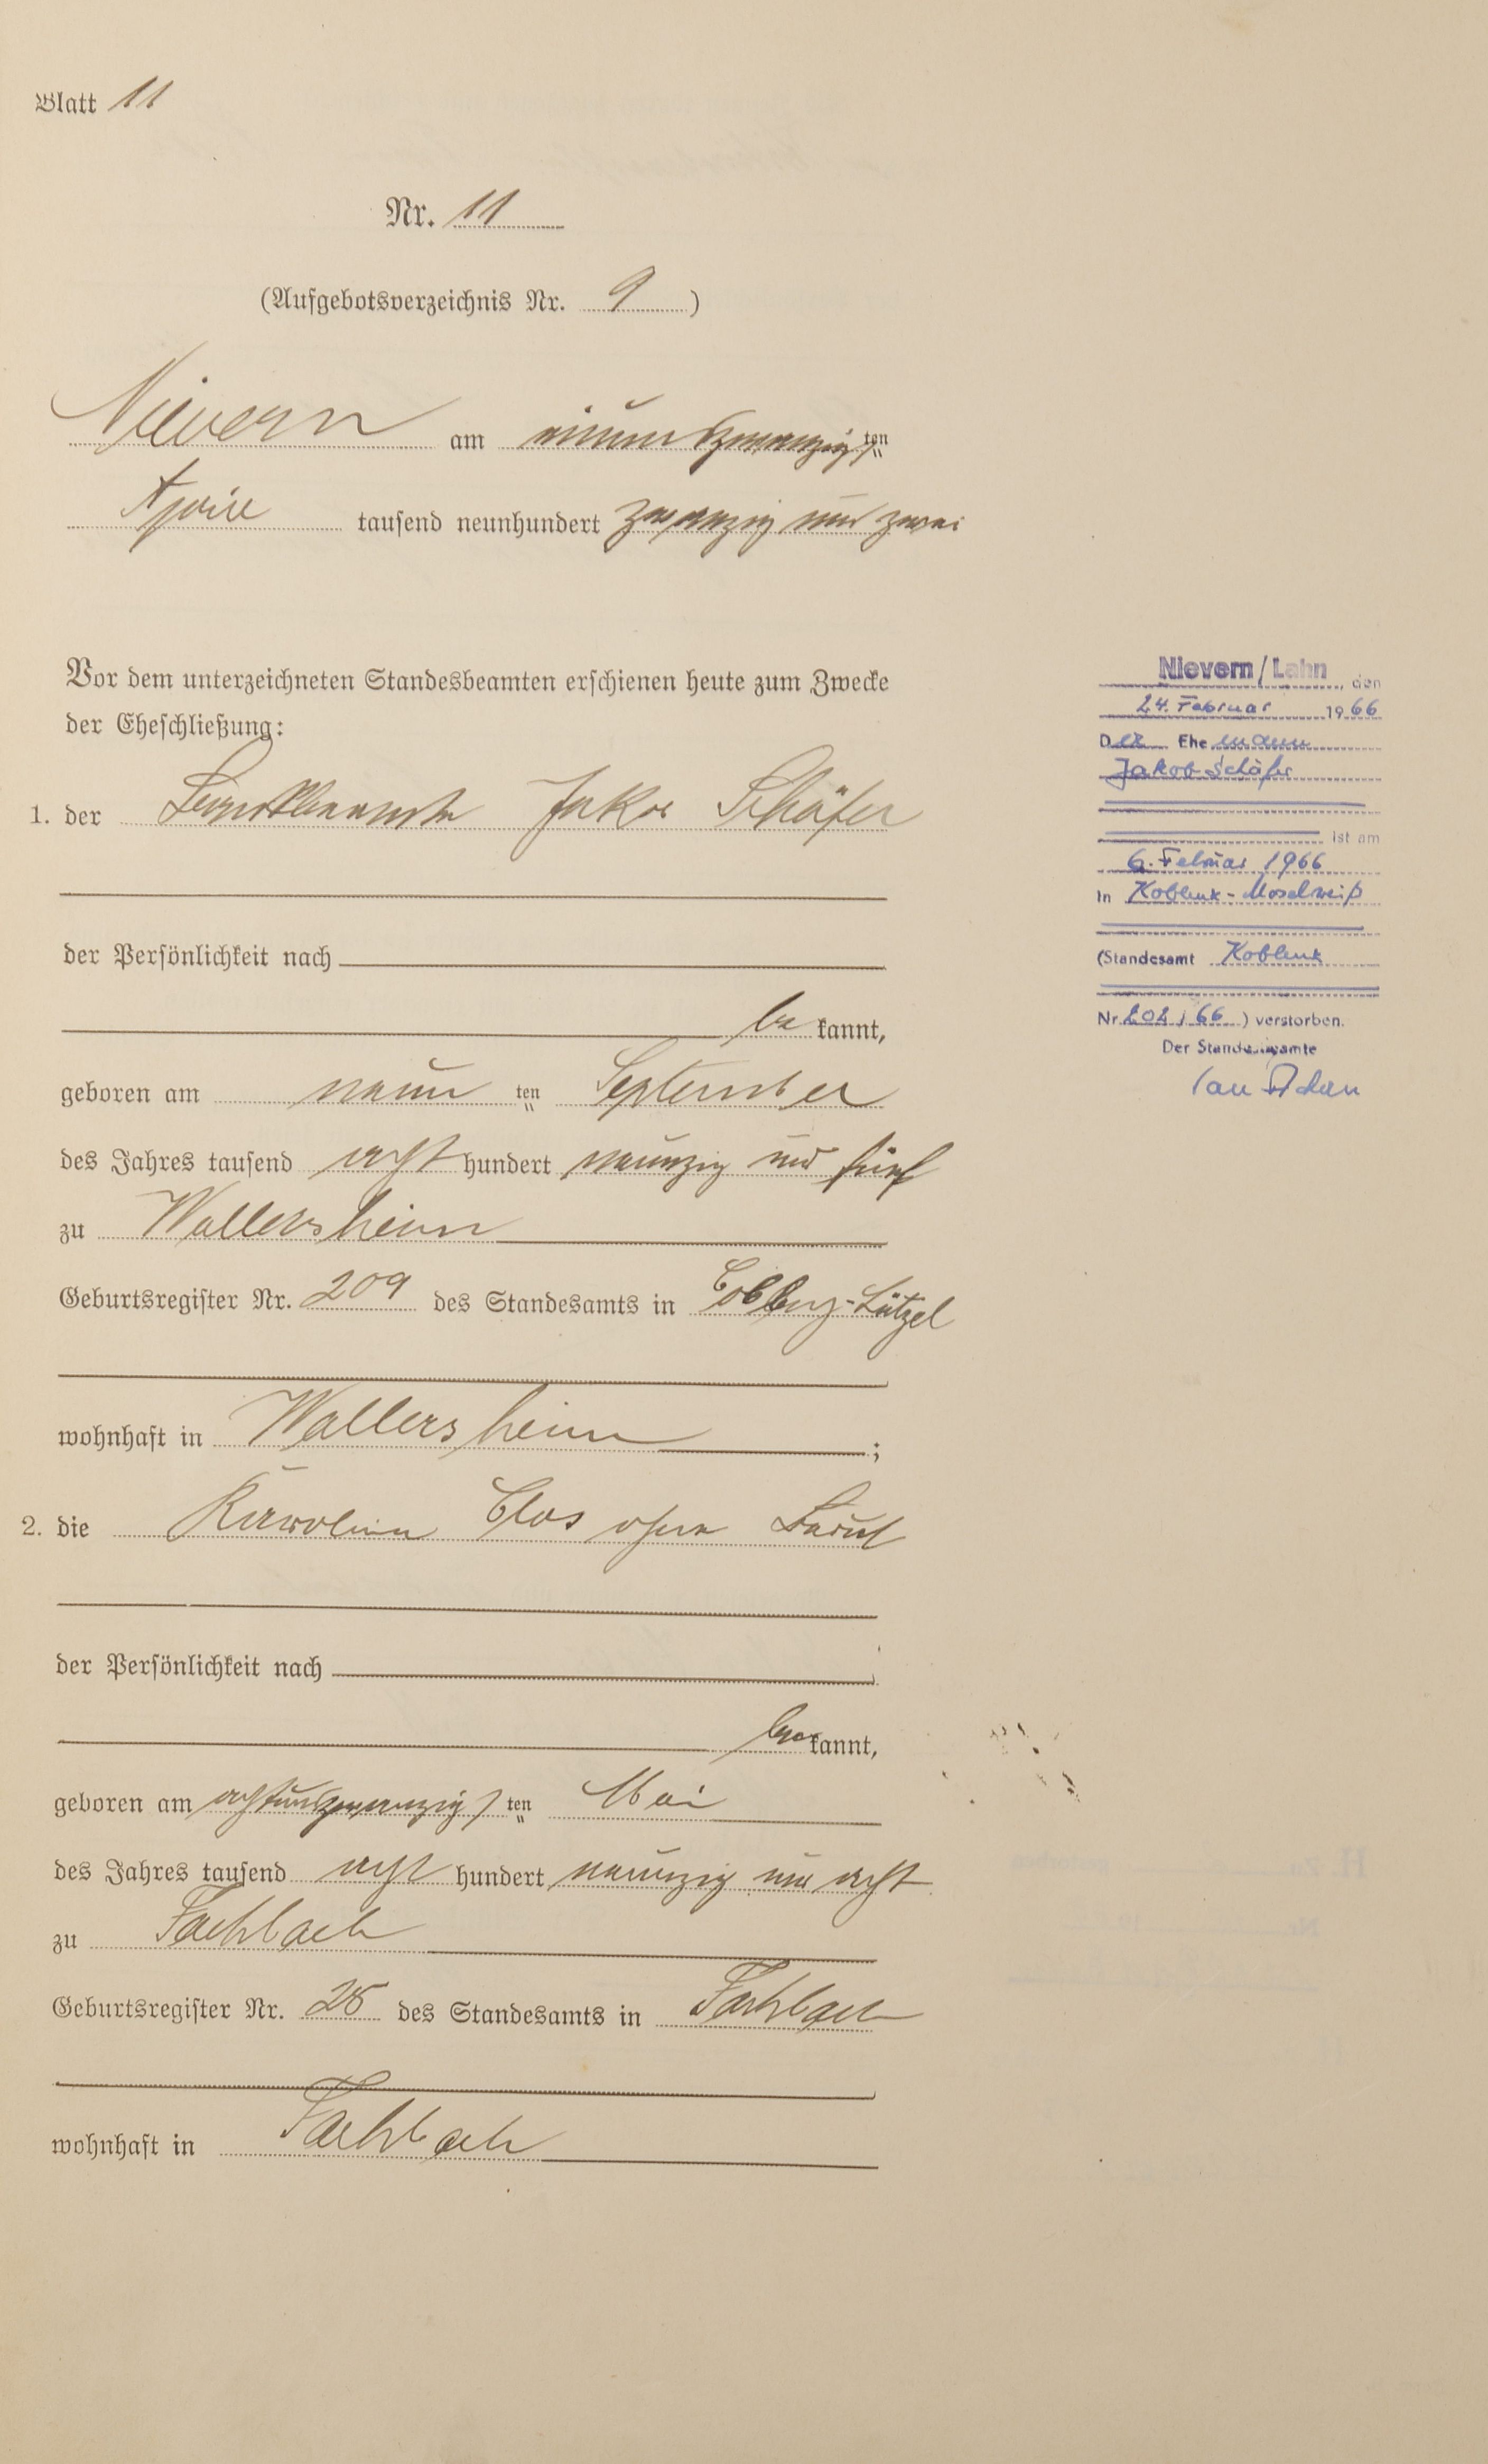 Blatt 11
Nr. 11
(Aufgebotsverzeichnis Nr. 9)
Nievern am einundzwanzigsten
April tausend neunhundert zwanzig und zwei
Vor dem unterzeichneten Standesbeamten erschienen heute zum Zwecke
der Eheschließung:
1. der Jakob Schäfer
der Persönlichkeit nach
be kannt,
geboren am neun ten September
des Jahres tausend acht hundert neunzig und fünf
zu Wallersheim
Geburtsregister Nr. 209 des Standesamts in Coblenz-Lützel
wohnhaft in Wallersheim ;
2. die Karolina Clos ohne Beruf
der Persönlichkeit nach
be kannt,
geboren am achtundzwanzigs ten Mai
des Jahres tausend acht hundert neunzig und acht
zu Fachbach
Geburtsregister Nr. 25 des Standesamts in Fachbach
wohnhaft in Fachbach
Nievern/Lahn, den
24. Februar 1966
Der Ehe mann
Jakob Schäfer
ist am
6. Februar 1966
in Koblenz-Moselweiß
(Standesamt Koblenz
Nr. 202/66) verstorben.
Der Standesbeamte